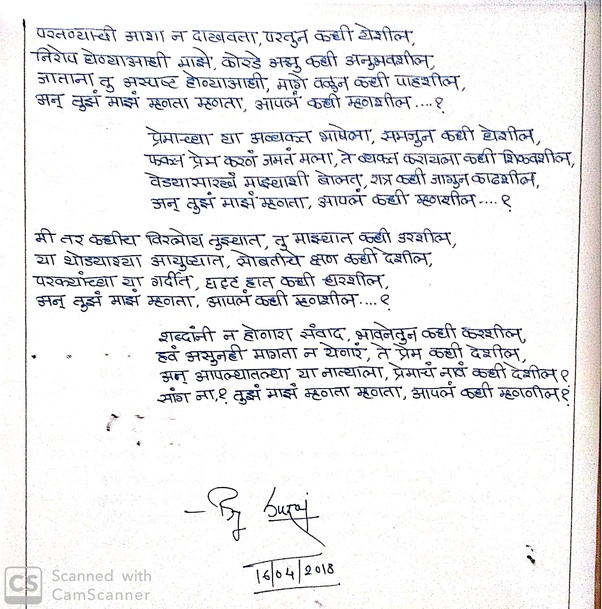 परतण्याची आशा न दाखवता, परतुन कधी येशील,
निरोप होण्याआधी माझे, कोरडे अश्रु कधी अनुभवशील,
जाताना तु अस्पष्ट होण्याआधी, मागे वळुन कधी पाहशील,
अन् तुझं माझं म्हणता म्हणता, आपलं कधी म्हणशील....?
प्रेमाच्या या अव्यक्त भाषेला, समजुन कधी घेशील,
फक्त प्रेम करणं जमतं मला, ते व्यक्त करायला कधी शिकवशील,
वेड्यासारखं माझ्याशी बोलत, रात्र कधी जागुन काढशील,
अन् तुझं माझं म्हणता, आपलं कधी म्हणशील....?
मी तर कधीच विरलोय तुझ्यात, तु माझ्यात कधी उरशील,
या थोड्याश्या आयुष्यात, सोबतीचे क्षण कधी देशील,
परक्यांच्या या गर्दीत, घट्ट हात कधी धरशील,
अन् तुझं माझं म्हणता, आपलं कधी म्हणशील....?
शब्दांनी न होणारा संवाद, भावनेतुन कधी करशील,
हवं असुनही मागता न येणारं, ते प्रेम कधी देशील,
अन् आपल्यातल्या या नात्याला, प्रेमाचं नावं कधी देशील?
सांग ना? तुझं माझं म्हणता म्हणता, आपलं कधी म्हणशील?
- By Suraj
16/04/2018
CS Scanned with
CamScanner